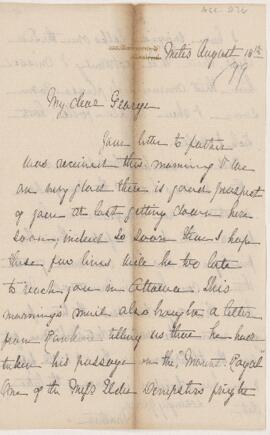 ACC 276
Metis August 18th
/99
My dear George
Your letter to father
was received this morning & we
are very glad there is good prospect
of your at last getting down here
soon, indeed so soon that I hope
these few lines will be too late
to reach you in Ottawa. This
mornings mail also brought a letter
from Frank telling us that he has
taken his passage on the "Mount Royal"
one of the Elder Dempsters freight